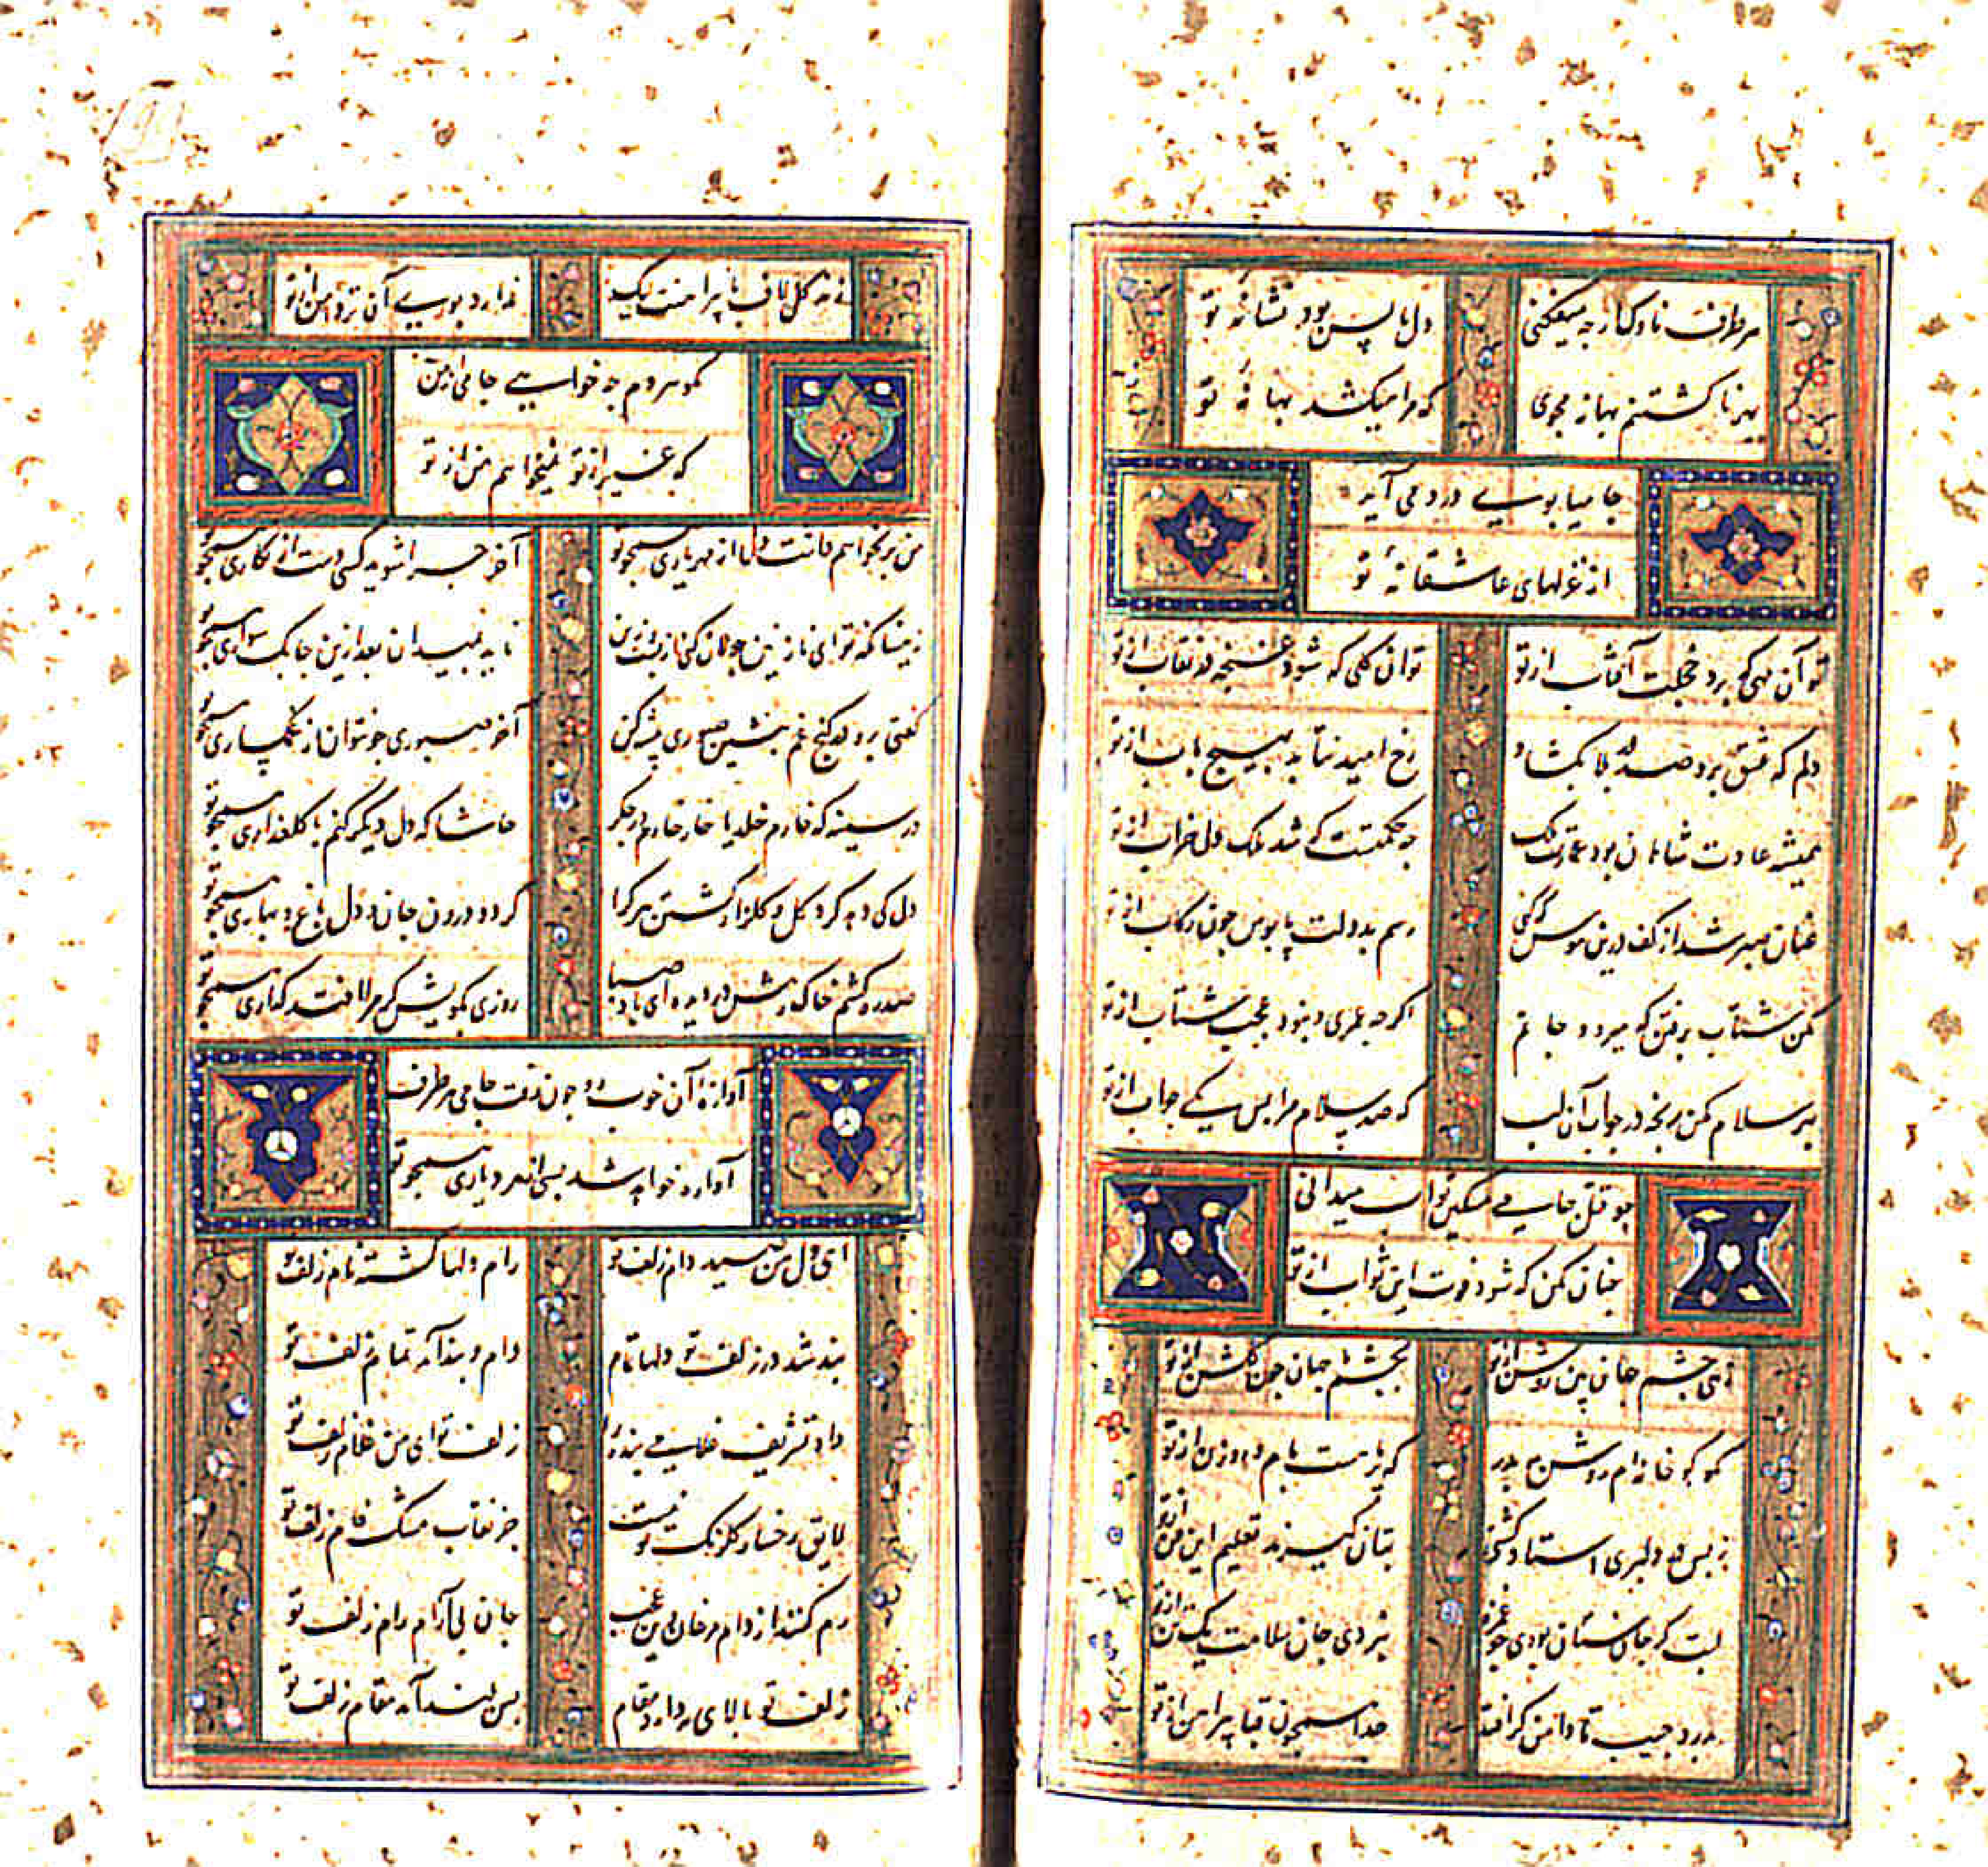 هر طرف ناوک ار چه میفکنی دل ما بس بود نشانهٔ تو
بهر ناکشتنم بهانه مجوی که مرا میکشد بهانهٔ تو
جامیا بوی درد می آید
از غزلهای عاشقانهٔ تو
تو آن مهی که برد خجلت آفتاب از تو تو آن گلی که شود غنچه در نقاب از تو
دلم که عشق برو صد در بلا بگشاد رخ امید نتابد به هیچ باب از تو
همیشه عادت شاهان بود عمارت ملک چه حکمتست که شد ملک دل خراب از تو
عنان صبر شد از کف درین هوس که گهی رسم بدولت پابوس چون رکاب از تو
مکن شتاب برفتن که میرود جانم اگر چه عمری و نبود عجب شتاب از تو
بهر سلام مکن رنجه در جواب آن لب که صد سلام مرا بس یکی جواب از تو
چو قتل جامی مسکین ثواب میدانی
چنان مکن که شود فوت این ثواب از تو
زهی چشم جهان بین روشن از تو بچشمم جهان چون گلشن از تو
مگو کو خانه ام روشن بدر که پر ماهست بام و روزن از تو
ز بس در دلبری استاد گشتی بتان گیرند تعلیم این فن از تو
لبت گر جان ستان بودی چو غمزه نبردی جان سلامت یک تن از تو
بدرد جیب تا دامن گر افتد جدا همچون قبا پیراهن از تو
نه گل لاف با پیراهنت لیک ندارد بوی آن تردامن از تو
مگو هر دم چه خواهی جامی از من
که غیر از تو نمیخواهم من از تو
من بر نخواهم داشت دل از مهر یاری همچو تو آخر چرا شوید کسی دست از نگاری همچو تو
زینسان که تو ای نازنین جولان کنی از پشت زین ناید بمیدان بعد ازین چابک سواری همچو تو
گفتی برو در کنج غم بنشین صبوری پیشه کن آخر صبوری چون توان از غمگساری همچو تو
در سینه گر خارم خلد یا خار خارم در جگر حاشا که دل دیگر کنم با گلعذاری همچو تو
دل کی دهد گرد گل و گلزار گشتن هر کرا گردد درون جان و دل باغ و بهاری همچو تو
صد ره کشم خاک رهش در دیده ای باد صبا روزی بکویش گر مرا افتد گذاری همچو تو
آوازهٔ آن خوب رو چون رفت جامی هر طرف
آواره خواهد شد بسی از هر دیاری همچو تو
ای دل من صید دام زلف تو رام دلها گشته نام زلف تو
بند شد در زلف تو دلها تمام دام و بند آمد تمام زلف تو
داد تشریف غلامی بنده را زلف تو ای من غلام زلف تو
لایق رخسار گلرنگ تو نیست جز نقاب مشک فام زلف تو
رم کنند از دام مرغان این عجب جان بی آرام رام زلف تو
زلف تو بالای مه دارد مقام بس بلند آمد مقام زلف تو